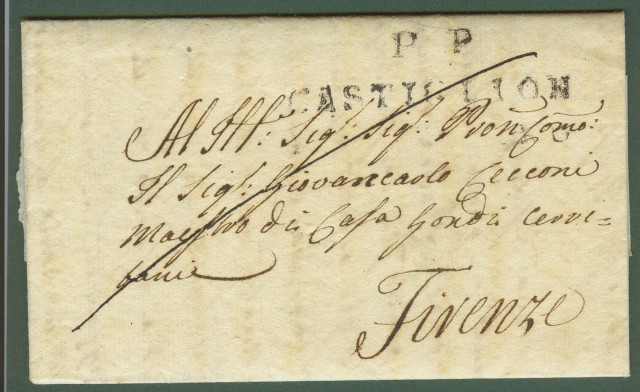 P P
CASTIGLION
Al Ill: Sig: Sig: Pron Como:
Il Sig: Giovancarlo Cecconi
Maestro di Casa Gondi Cerri=
tani
Firenze